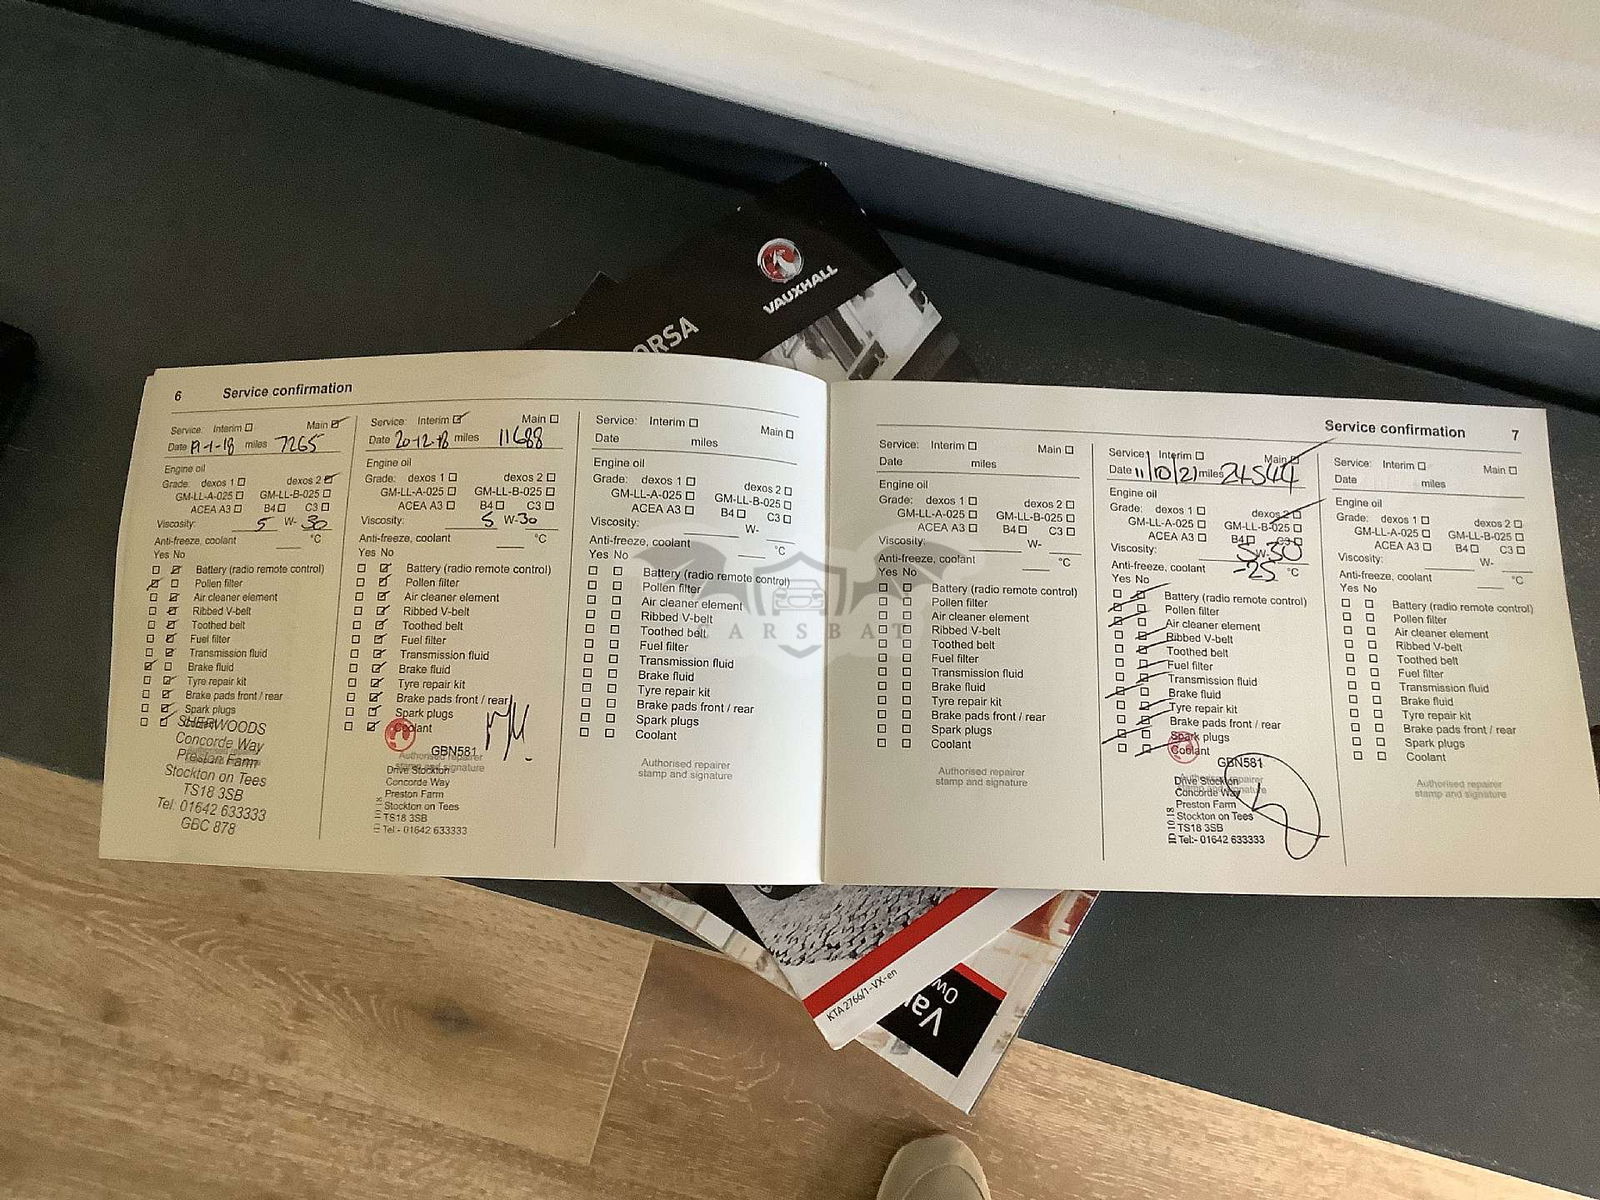 VAUXHALL
ORSA
6 Service confirmation
Service: Interim Main
Date 19-1-18 miles 7265
Engine oil
Grade: dexos 1 dexos 2
GM-LL-A-025 GM-LL-B-025
ACEA A3 B4 C3
Viscosity: 5 W- 30
Anti-freeze, coolant °C
Yes No
Battery (radio remote control)
Pollen filter
Air cleaner element
Ribbed V-belt
Toothed belt
Fuel filter
Transmission fluid
Brake fluid
Tyre repair kit
Brake pads front / rear
Spark plugs
SHERWOODS
Concorde Way
Preston Farm
Stockton on Tees
TS18 3SB
Tel: 01642 633333
GBC 878
Service: Interim Main
Date 20-12-18 miles 11688
Engine oil
Grade: dexos 1 dexos 2
GM-LL-A-025 GM-LL-B-025
ACEA A3 B4 C3
Viscosity: 5 W-30
Anti-freeze, coolant °C
Yes No
Battery (radio remote control)
Pollen filter
Air cleaner element
Ribbed V-belt
Toothed belt
Fuel filter
Transmission fluid
Brake fluid
Tyre repair kit
Brake pads front / rear
Spark plugs
Coolant
GBN581
Authorised repairer
stamp and signature
Drive Stockton
Concorde Way
Preston Farm
Stockton on Tees
TS18 3SB
Tel:- 01642 633333
Service: Interim Main
Date miles
Engine oil
Grade: dexos 1 dexos 2
GM-LL-A-025 GM-LL-B-025
ACEA A3 B4 C3
Viscosity: W-
Anti-freeze, coolant °C
Yes No
Battery (radio remote control)
Pollen filter
Air cleaner element
Ribbed V-belt
Toothed belt
Fuel filter
Transmission fluid
Brake fluid
Tyre repair kit
Brake pads front / rear
Spark plugs
Coolant
Authorised repairer
stamp and signature
CARSBAT
Service confirmation 7
Service: Interim Main
Date miles
Engine oil
Grade: dexos 1 dexos 2
GM-LL-A-025 GM-LL-B-025
ACEA A3 B4 C3
Viscosity: W-
Anti-freeze, coolant °C
Yes No
Battery (radio remote control)
Pollen filter
Air cleaner element
Ribbed V-belt
Toothed belt
Fuel filter
Transmission fluid
Brake fluid
Tyre repair kit
Brake pads front / rear
Spark plugs
Coolant
Authorised repairer
stamp and signature
Service: Interim Main
Date 11/10/21 miles 24544
Engine oil
Grade: dexos 1 dexos 2
GM-LL-A-025 GM-LL-B-025
ACEA A3 B4 C3
Viscosity: 5 W- 30
Anti-freeze, coolant -25 °C
Yes No
Battery (radio remote control)
Pollen filter
Air cleaner element
Ribbed V-belt
Toothed belt
Fuel filter
Transmission fluid
Brake fluid
Tyre repair kit
Brake pads front / rear
Spark plugs
Coolant
GBN581
Authorised repairer
stamp and signature
Drive Stockton
Concorde Way
Preston Farm
Stockton on Tees
TS18 3SB
Tel:- 01642 633333
ID 10.18
Service: Interim Main
Date miles
Engine oil
Grade: dexos 1 dexos 2
GM-LL-A-025 GM-LL-B-025
ACEA A3 B4 C3
Viscosity: W-
Anti-freeze, coolant °C
Yes No
Battery (radio remote control)
Pollen filter
Air cleaner element
Ribbed V-belt
Toothed belt
Fuel filter
Transmission fluid
Brake fluid
Tyre repair kit
Brake pads front / rear
Spark plugs
Coolant
Authorised repairer
stamp and signature
KTA 2766/1-VX-en
Va
Ow